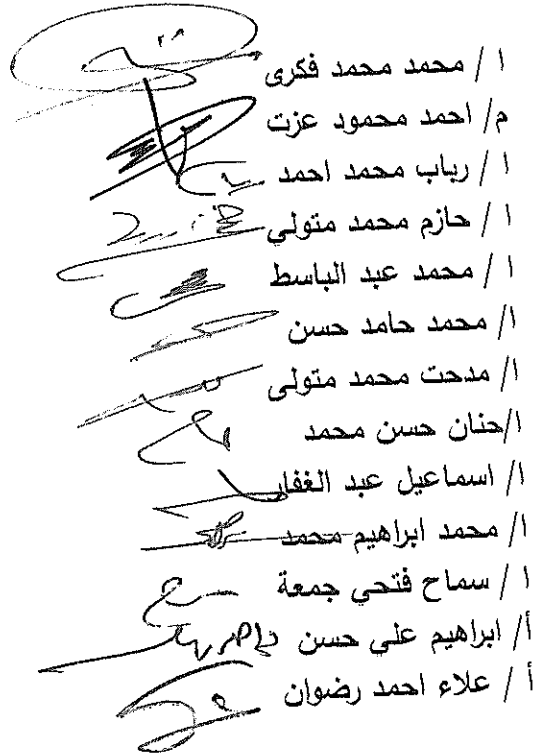 ا / محمد محمد فكرى
م/ احمد محمود عزت
ا / رباب محمد احمد
ا / حازم محمد متولي
ا / محمد عبد الباسط
ا/ محمد حامد حسن
ا/ مدحت محمد متولى
ا/حنان حسن محمد
ا/ اسماعيل عبد الغفار
ا/ محمد ابراهيم محمد
ا / سماح فتحي جمعة
أ/ ابراهيم على حسن
أ / علاء احمد رضوان